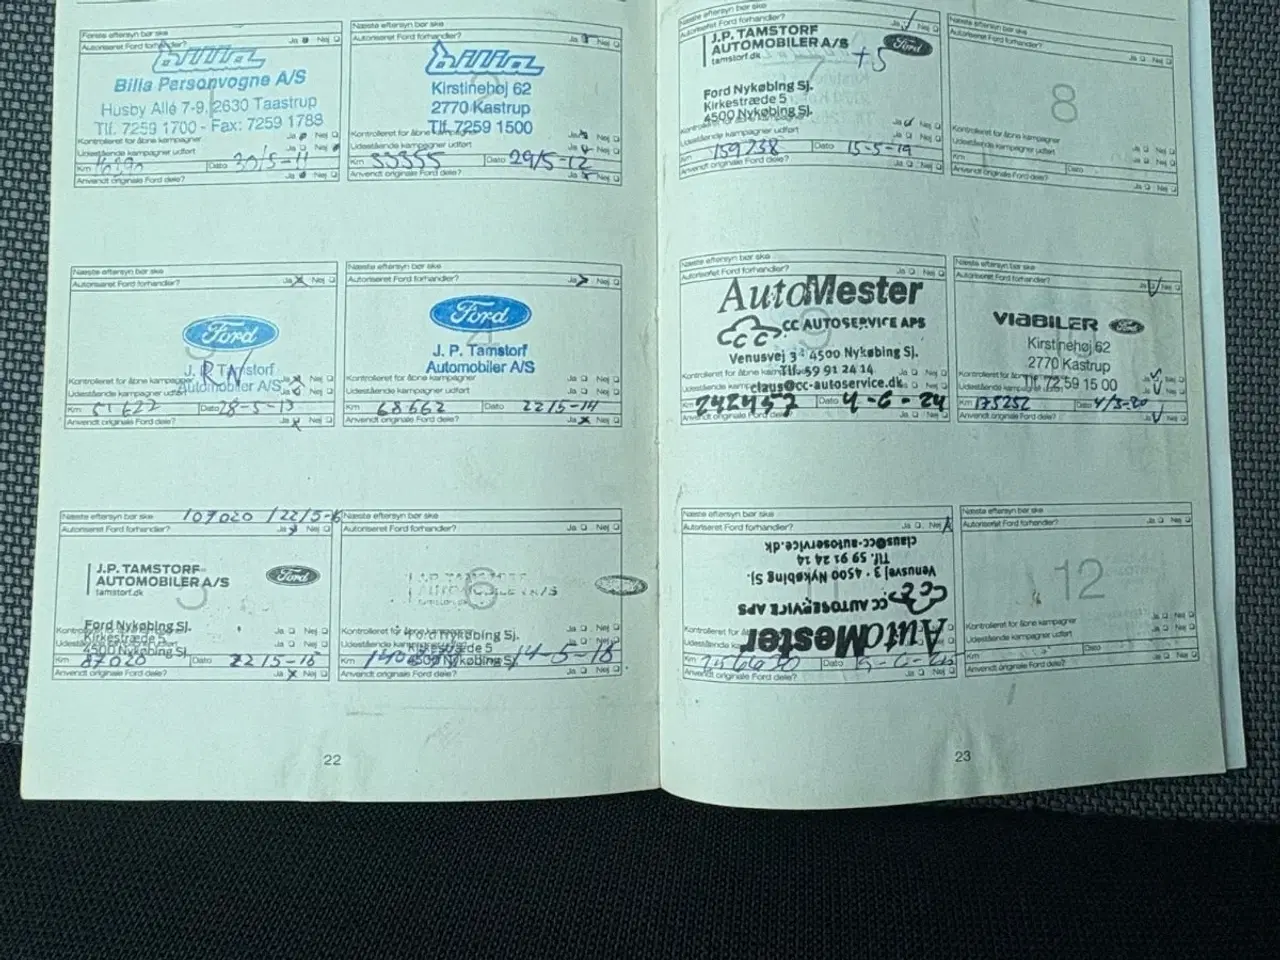 Første eftersyn bør ske
Autoriseret Ford forhandler? Ja Nej
Bilia
Bilia Personvogne A/S
Husby Allé 7-9, 2630 Taastrup
Tlf. 7259 1700 - Fax: 7259 1788
Kontrolleret for åbne kampagner Ja Nej
Udestående kampagner udført Ja Nej
Km Dato 30/5-11
Anvendt originale Ford dele? Ja Nej
Næste eftersyn bør ske
Autoriseret Ford forhandler? Ja
Bilia
Kirstinehøj 62
2770 Kastrup
Tlf. 7259 1500
Kontrolleret for åbne kampagner Nej
Udestående kampagner udført Nej
Km 33355 Dato 29/5-12
Anvendt originale Ford dele? Ja Nej
Næste eftersyn bør ske
Autoriseret Ford forhandler? Ja Nej
Ford
3
J. P. Tamstorf
Automobiler A/S
Kontrolleret for åbne kampagner Nej
Udestående kampagner udført Nej
Km 51627 Dato 28-5-13
Anvendt originale Ford dele? Ja Nej
Næste eftersyn bør ske
Autoriseret Ford forhandler? Ja Nej
Ford
4
J. P. Tamstorf
Automobiler A/S
Kontrolleret for åbne kampagner Ja Nej
Udestående kampagner udført Ja Nej
Km 68662 Dato 22/5-14
Anvendt originale Ford dele? Ja Nej
Næste eftersyn bør ske 107020 /22/5-16
Autoriseret Ford forhandler? Ja Nej
J.P. TAMSTORF
AUTOMOBILER A/S
tamstorf.dk
Ford
5
Ford Nykøbing Sj.
Kirkestræde 5
4500 Nykøbing Sj.
Ja Nej
Km 87020 Dato 22/5-15
Anvendt originale Ford dele? Ja Nej
Næste eftersyn bør ske
Autoriseret Ford forhandler? Ja Nej
J.P. TAMSTORF
AUTOMOBILER A/S
6
Ford Nykøbing Sj.
Kirkestræde 5
4500 Nykøbing Sj.
Ja Nej
Km 14-5-18
Anvendt originale Ford dele? Ja Nej
22
Næste eftersyn bør ske
Ja Nej
J.P. TAMSTORF
AUTOMOBILER A/S
tamstorf.dk
Ford
7 +5
Ford Nykøbing Sj.
Kirkestræde 5
4500 Nykøbing Sj.
Ja Nej
Udestående kampagner udført Ja Nej
Km 159738 Dato 15-5-19
Anvendt originale Ford dele? Ja Nej
Næste eftersyn bør ske
Autoriseret Ford forhandler? Ja Nej
8
Kontrolleret for åbne kampagner Ja Nej
Udestående kampagner udført Ja Nej
Km Dato
Anvendt originale Ford dele? Ja Nej
Næste eftersyn bør ske
Autoriseret Ford forhandler? Ja Nej
AutoMester
9
CC AUTOSERVICE APS
Venusvej 3 · 4500 Nykøbing Sj.
Tlf. 59 91 24 14
claus@cc-autoservice.dk
Kontrolleret for åbne kampagner Ja Nej
Udestående kampagner Ja Nej
Km 242457 Dato 4-6-24
Anvendt originale Ford dele? Ja Nej
Næste eftersyn bør ske
Autoriseret Ford forhandler? Ja Nej
VIABILER Ford
Kirstinehøj 62
2770 Kastrup
Tlf. 72 59 15 00
Kontrolleret for åbne kampagner Nej
Udestående kampagner udført Nej
Km 175252 Dato 4/5-20
Anvendt originale Ford dele? Ja Nej
Næste eftersyn bør ske
Autoriseret Ford forhandler? Ja Nej
AutoMester
CC AUTOSERVICE APS
Venusvej 3 · 4500 Nykøbing Sj.
Tlf. 59 91 24 14
claus@cc-autoservice.dk
Kontrolleret for Ja Nej
Udestående Ja Nej
Km Dato
Anvendt originale Ford dele? Ja Nej
Næste eftersyn bør ske
Autoriseret Ford forhandler? Ja Nej
12
Kontrolleret for åbne kampagner Ja Nej
Udestående kampagner udført Ja Nej
Km Dato
Anvendt originale Ford dele? Ja Nej
23